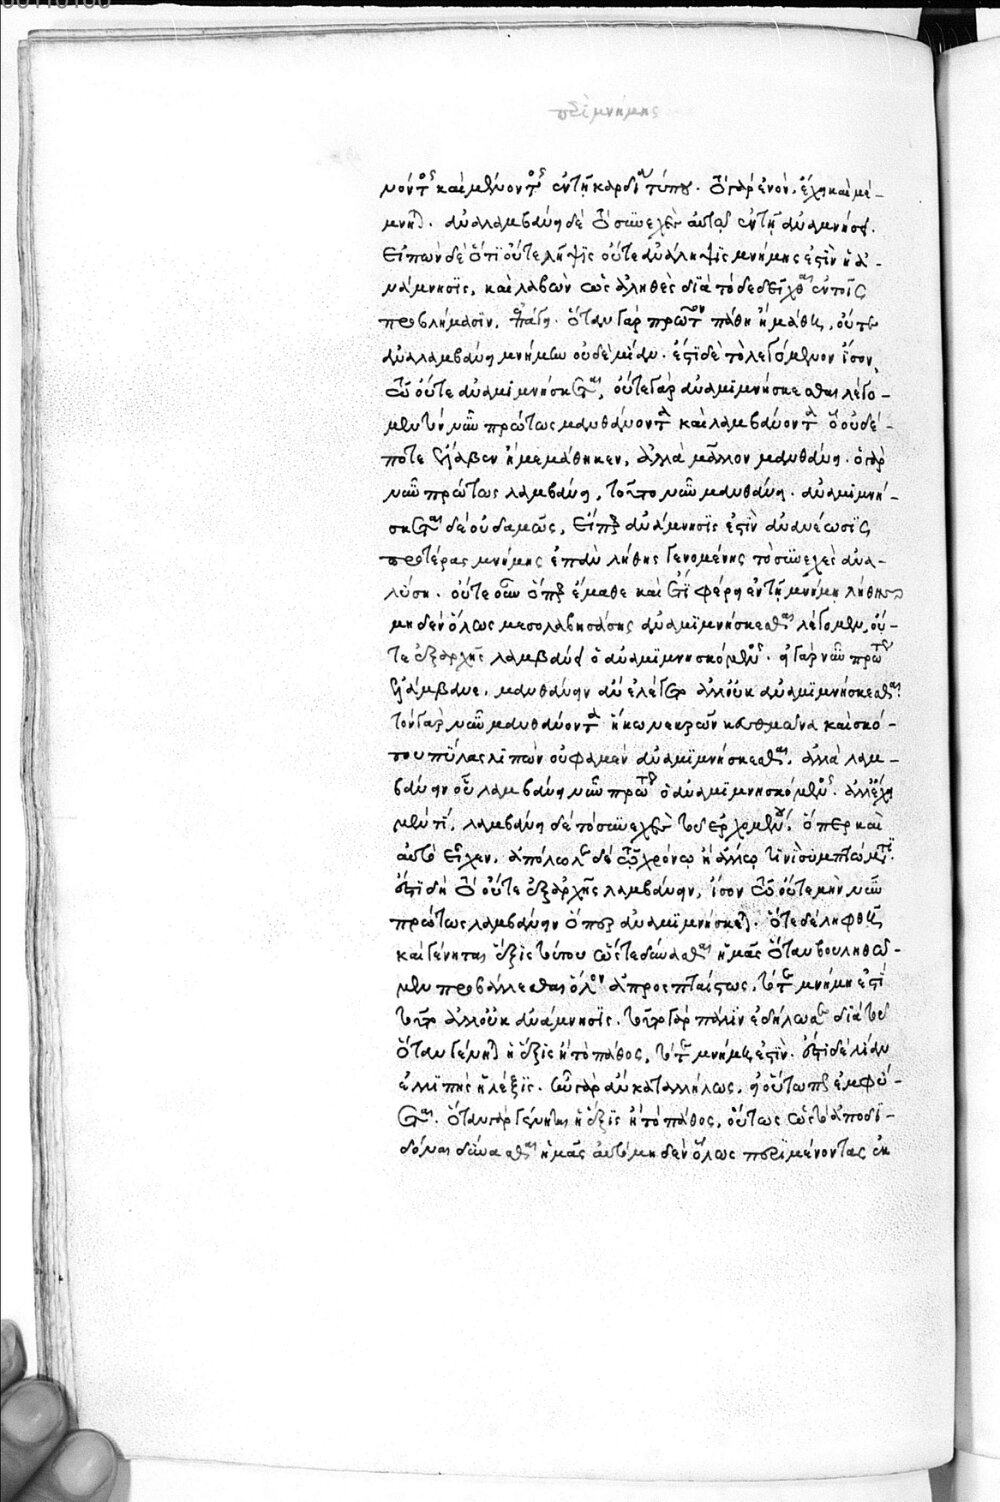 περὶ μνήμης
μόντος καὶ μένοντος ἐν τῇ καρδίᾳ τύπου. ὁ γὰρ ἐνὸν, ἔχει καὶ μέ-
μνηται. ἀναλαμβάνει δὲ ὁ συνεχὲς αὐτῷ ἐν τῇ ἀναμνήσει.
Εἰπὼν δὲ ὅτι οὔτε λῆψις οὔτε ἀνάληψις μνήμης ἐστὶν ἡ ἀ-
νάμνησις, καὶ λαβὼν ὡς ἀληθὲς διὰ τὸ δεδεῖχθαι ἐν τοῖς
προβλήμασιν, ἐπάγει. ὅταν γὰρ πρῶτον πάθη ἢ μάθη, οὔτε
ἀναλαμβάνει μνήμην οὐδεμίαν. ἐστὶ δὲ τὸ λεγόμενον ἴσον
τῷ οὔτε ἀναμιμνήσκεται, οὔτε γὰρ ἀναμιμνήσκεσθαι λέγο-
μεν τὸν νῦν πρώτως μανθάνοντα καὶ λαμβάνοντα ὃ οὐδέ-
ποτε εἰλάβεν ἢ μεμάθηκεν, ἀλλὰ μᾶλλον μανθάνει. ὁ γὰρ
νῦν πρώτως λαμβάνει, τοῦτο νῦν μανθάνει. ἀναμιμνή-
σκεται δὲ οὐδαμῶς, εἴπερ ἀνάμνησίς ἐστιν ἀνανέωσις
προτέρας μνήμης ἐπὰν λήθης γενομένης τὸ συνεχὲς ἀνα-
λύση. οὔτε οὖν ὅπερ ἔμαθε καὶ ἔτι φέρει ἐν τῇ μνήμῃ λήθης
μηδὲν ὅλως μεσολαβησάσης ἀναμιμνήσκεσθαι λέγομεν, οὔ-
τε ἐξαρχῆς λαμβάνει ὁ ἀναμιμνησκόμενος. εἰ γὰρ νῦν πρῶτον
ἐλάμβανε, μανθάνειν ἂν ἐλέγετο ἀλλ' οὐκ ἀναμιμνήσκεσθαι.
τὸν γὰρ νῦν μανθάνοντα ἥκω νεκρῶν κευθμῶνα καὶ σκό-
του πύλας λιπὼν οὐ φαμὲν ἀναμιμνήσκεσθαι, ἀλλὰ λαμ-
βάνειν οὐ λαμβάνει νῦν πρῶτον ὁ ἀναμιμνησκόμενος. ἀλλ' ἔχει
μέν τι, λαμβάνει δὲ τὸ συνεχὲς τὸ ἐρχόμενον, ὅπερ καὶ
αὐτὸ εἶχεν, ἀπόλωλε δὲ τῷ χρόνῳ ἢ ἄλλῳ τινὶ συμπτώματι.
ἔστι δὴ τὸ οὔτε ἐξαρχῆς λαμβάνειν, ἴσον τῷ οὔτε μὴν νῦν
πρώτως λαμβάνειν ὅπερ ἀναμιμνήσκεται. ὅτε δὲ ληφθῇ
καὶ γένηται ἕξις τύπου ὥστε δύνασθαι ἡμᾶς ὅταν βουληθῶ-
μεν προβάλλεσθαι ὅλον ἀπροσπταίστως, τότε μνήμη ἐστὶ
τοῦτο ἀλλ' οὐκ ἀνάμνησις. τοῦτο γὰρ πάλιν ἐδήλωσε διὰ τοῦ
ὅταν γένηται ἡ ἕξις ἢ τὸ πάθος, τότε μνήμη ἐστίν. ἔστι δὲ λίαν
ἐλλιπὴς ἡ λέξις. οὐ γὰρ ἀκαταλλήλως, εἰ οὕτω περ ἐμφύ-
εται. ὅταν γὰρ γένηται ἡ ἕξις ἢ τὸ πάθος, οὕτως ὥστε ἀποδι-
δόναι δύνασθαι ἡμᾶς αὐτὸ μηδὲν ὅλως περιμένοντας ἐκ